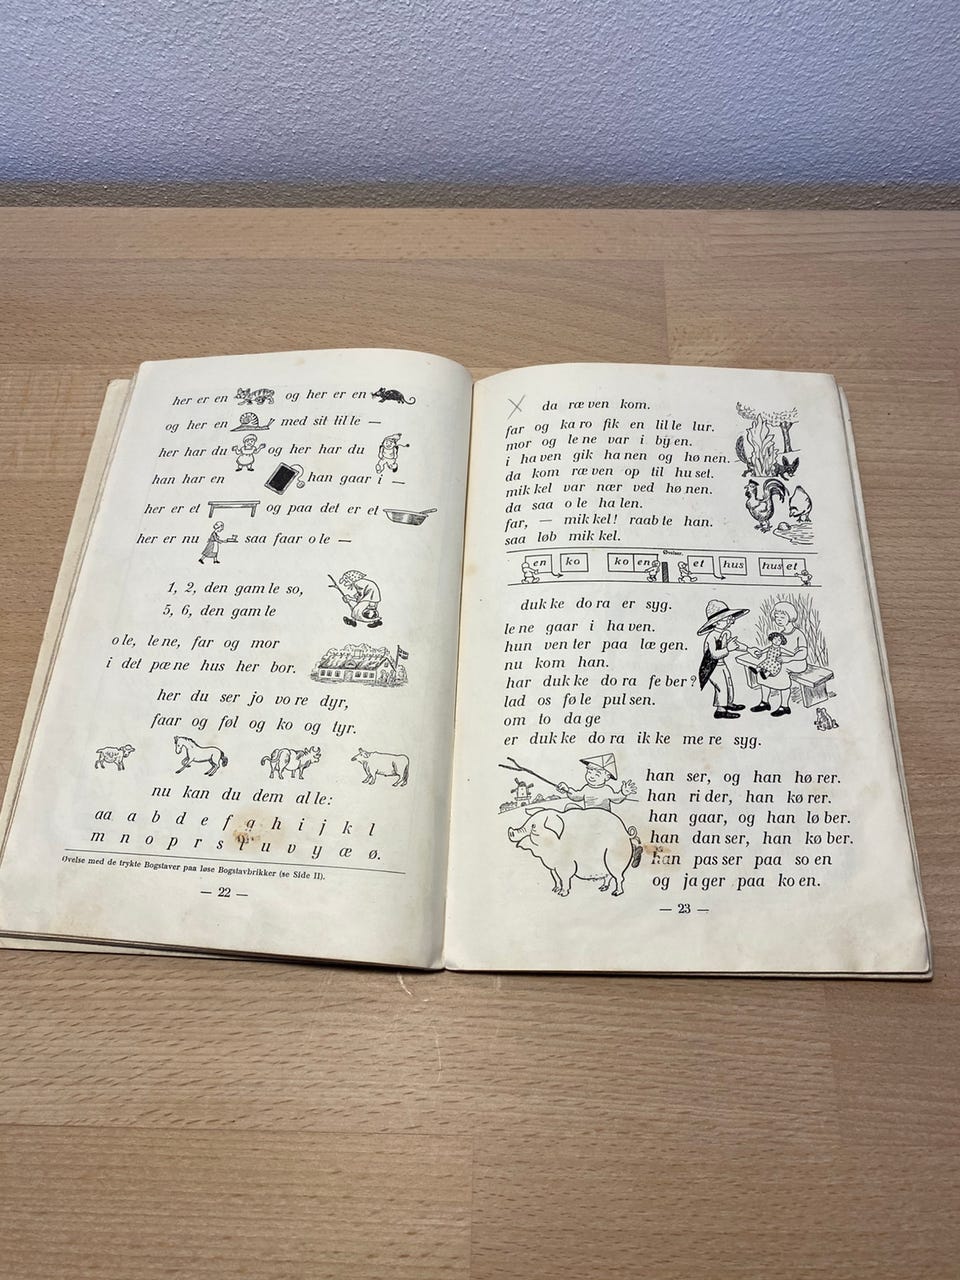 her er en og her er en
og her en med sit lil le —
her har du og her har du
han har en han gaar i —
her er et og paa det er et
her er nu saa faar o le —
1, 2, den gam le so,
5, 6, den gam le
o le, le ne, far og mor
i det pæ ne hus her bor.
her du ser jo vo re dyr,
faar og føl og ko og tyr.
nu kan du dem al le:
aa a b d e f g h i j k l
m n o p r s t u v y æ ø.
Øvelse med de trykte Bogstaver paa løse Bogstavbrikker (se Side II).
— 22 —
da ræ ven kom.
far og ka ro fik en lil le lur.
mor og le ne var i by en.
i ha ven gik ha nen og hø nen.
da kom ræ ven op til hu set.
mik kel var nær ved hø nen.
da saa o le ha len.
far, — mik kel! raab te han.
saa løb mik kel.
Øvelser.
en ko ko en et hus hus et
duk ke do ra er syg.
le ne gaar i ha ven.
hun ven ter paa læ gen.
nu kom han.
har duk ke do ra fe ber?
lad os fø le pul sen.
om to da ge
er duk ke do ra ik ke me re syg.
han ser, og han hø rer.
han ri der, han kø rer.
han gaar, og han lø ber.
han dan ser, han kø ber.
han pas ser paa so en
og ja ger paa ko en.
— 23 —